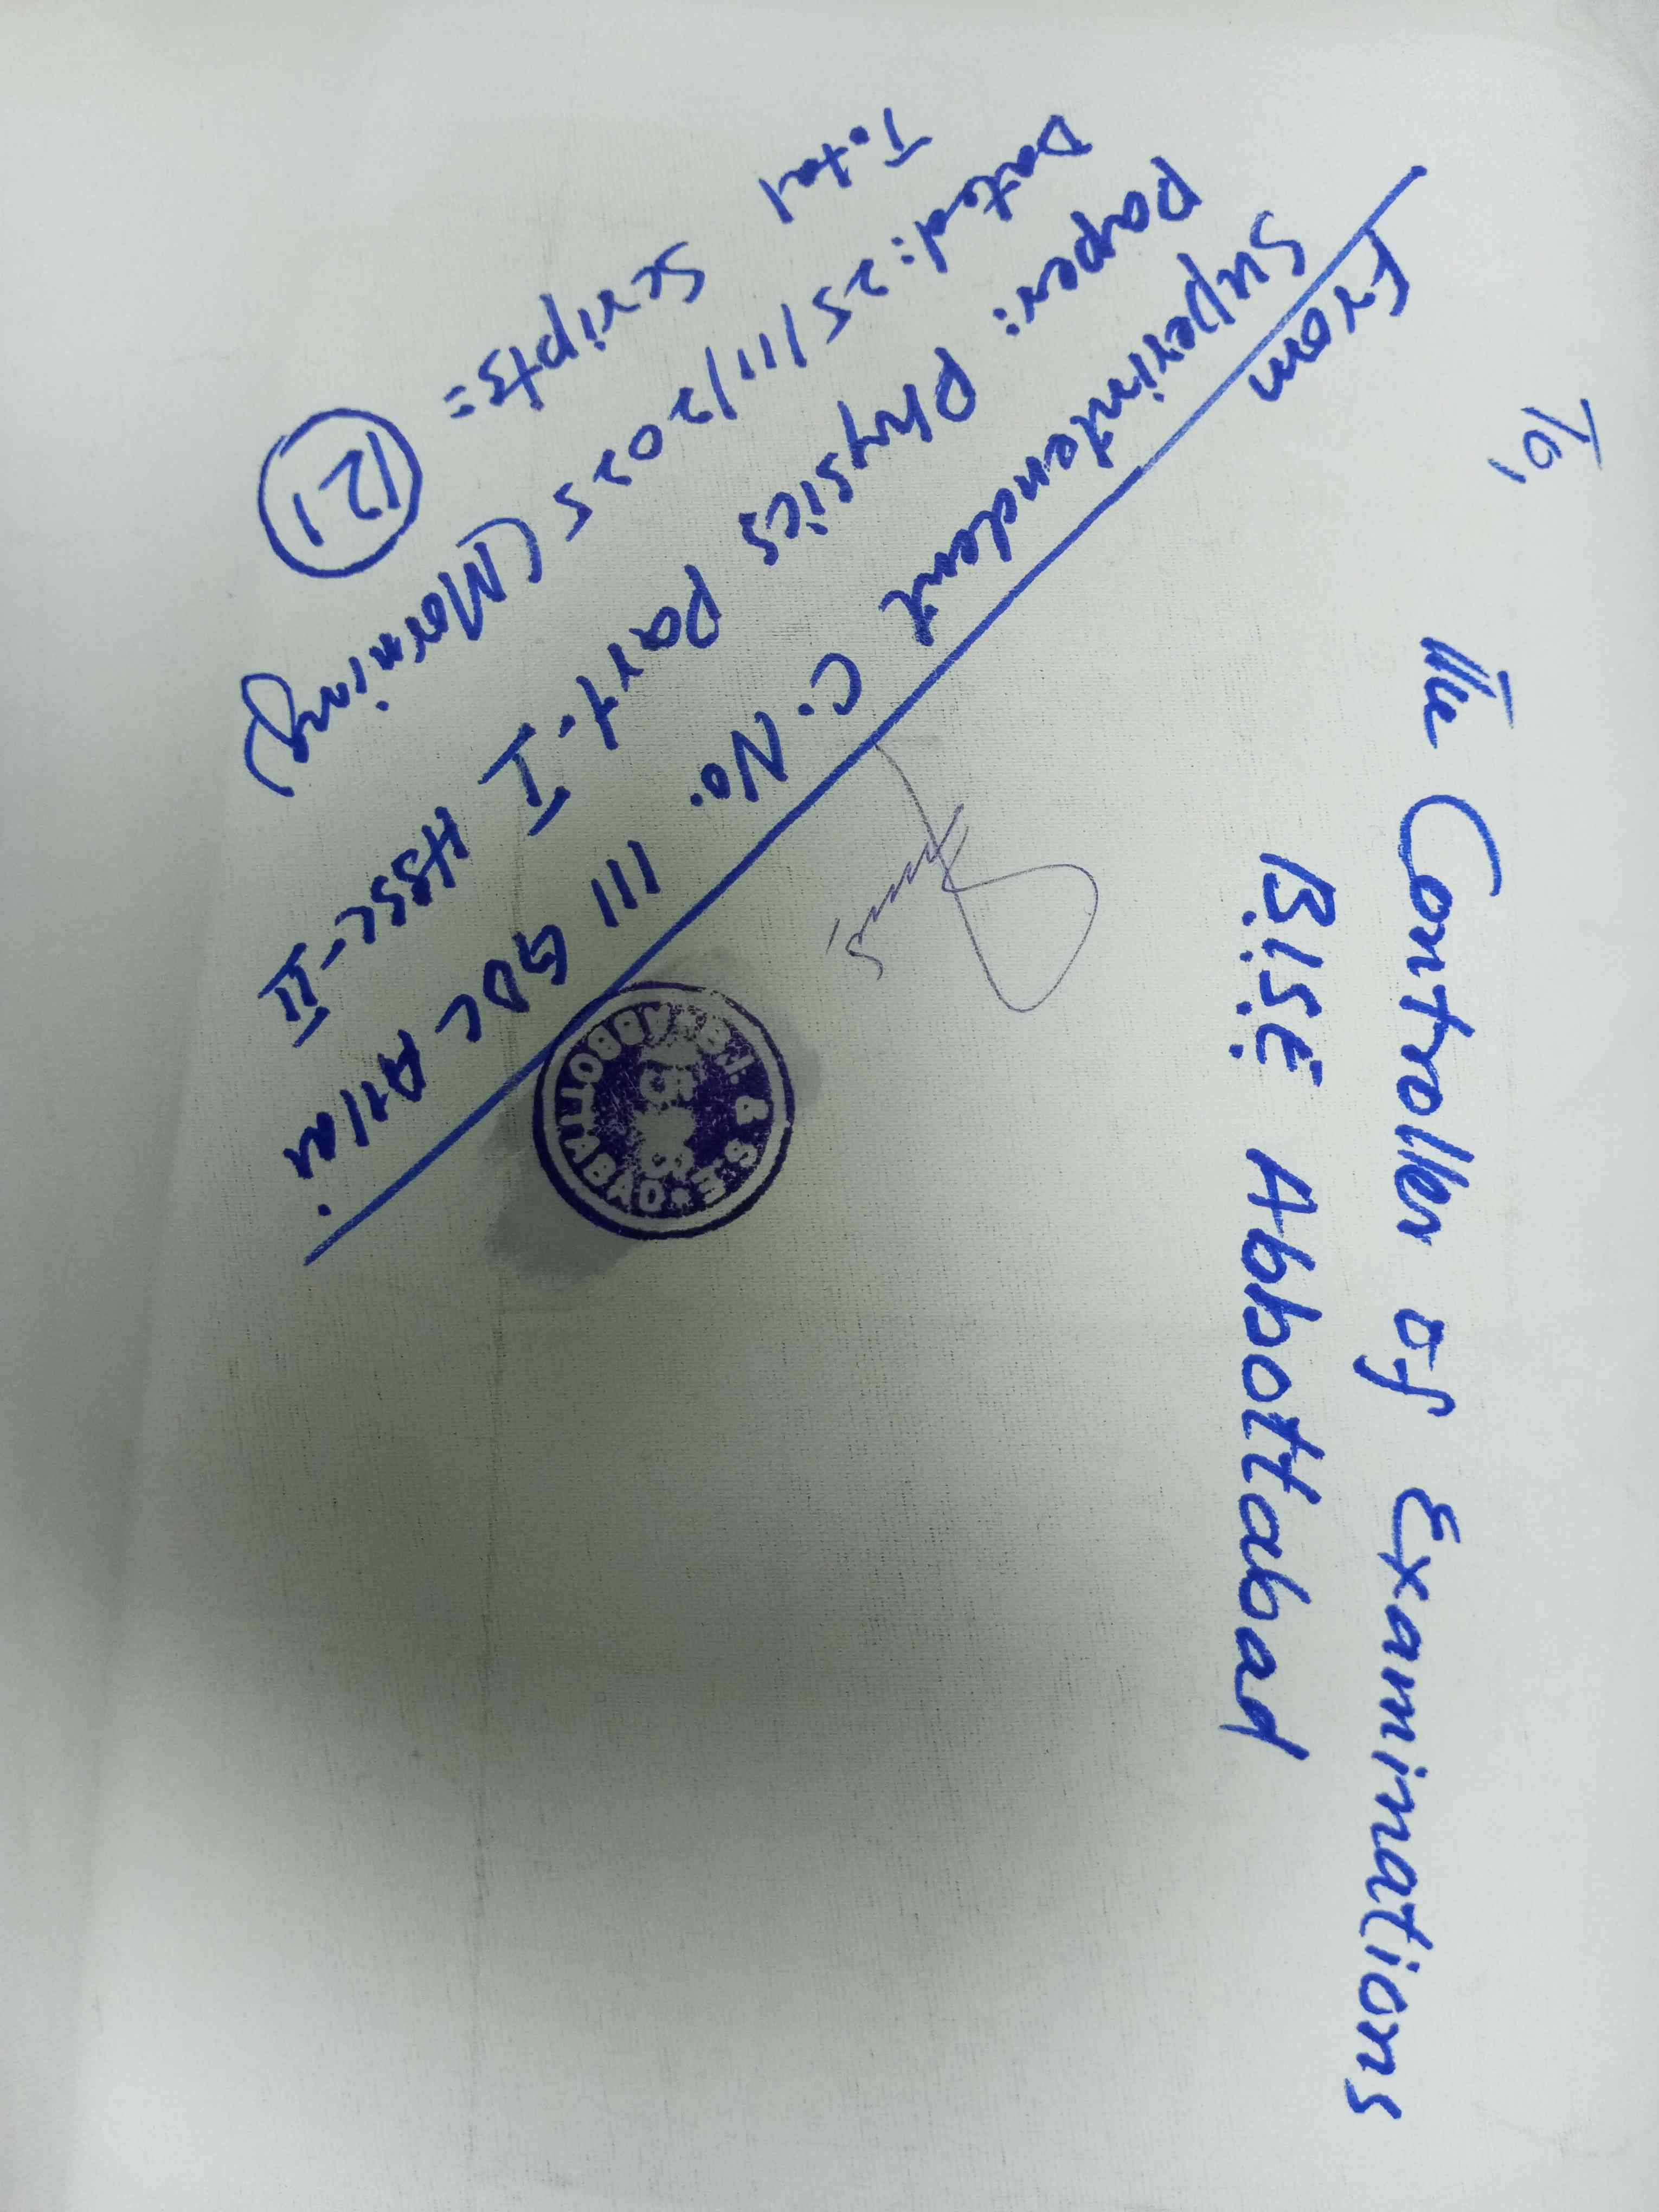 To,
The Controller of Examinations
B.I.S.E Abbottabad
From
Superintendent C. No. 111 GDC Allai
Paper: Physics Part-I HSSC-II
Dated: 25/11/2025 (Morning)
Total Scripts = 121
B.I. & S.E. ABBOTTABAD